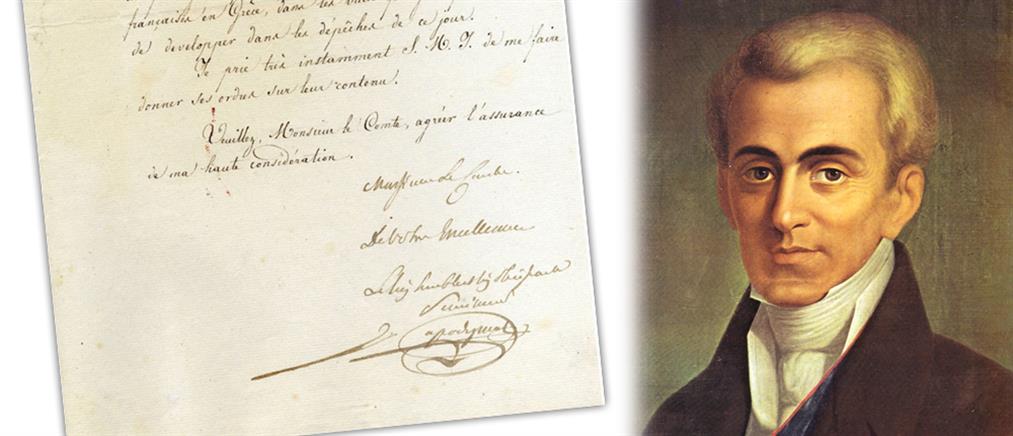 françaises en Grèce, dans les vues
de developper dans les dépêches de ce jour.
Je prie très instamment S. M. I. de me faire
donner ses ordres sur leur contenu.
Veuillez, Monsieur le Comte, agréer l'assurance
de ma haute considération.
Monsieur Le Comte.
De Votre Excellence
Le très humble et très
Serviteur